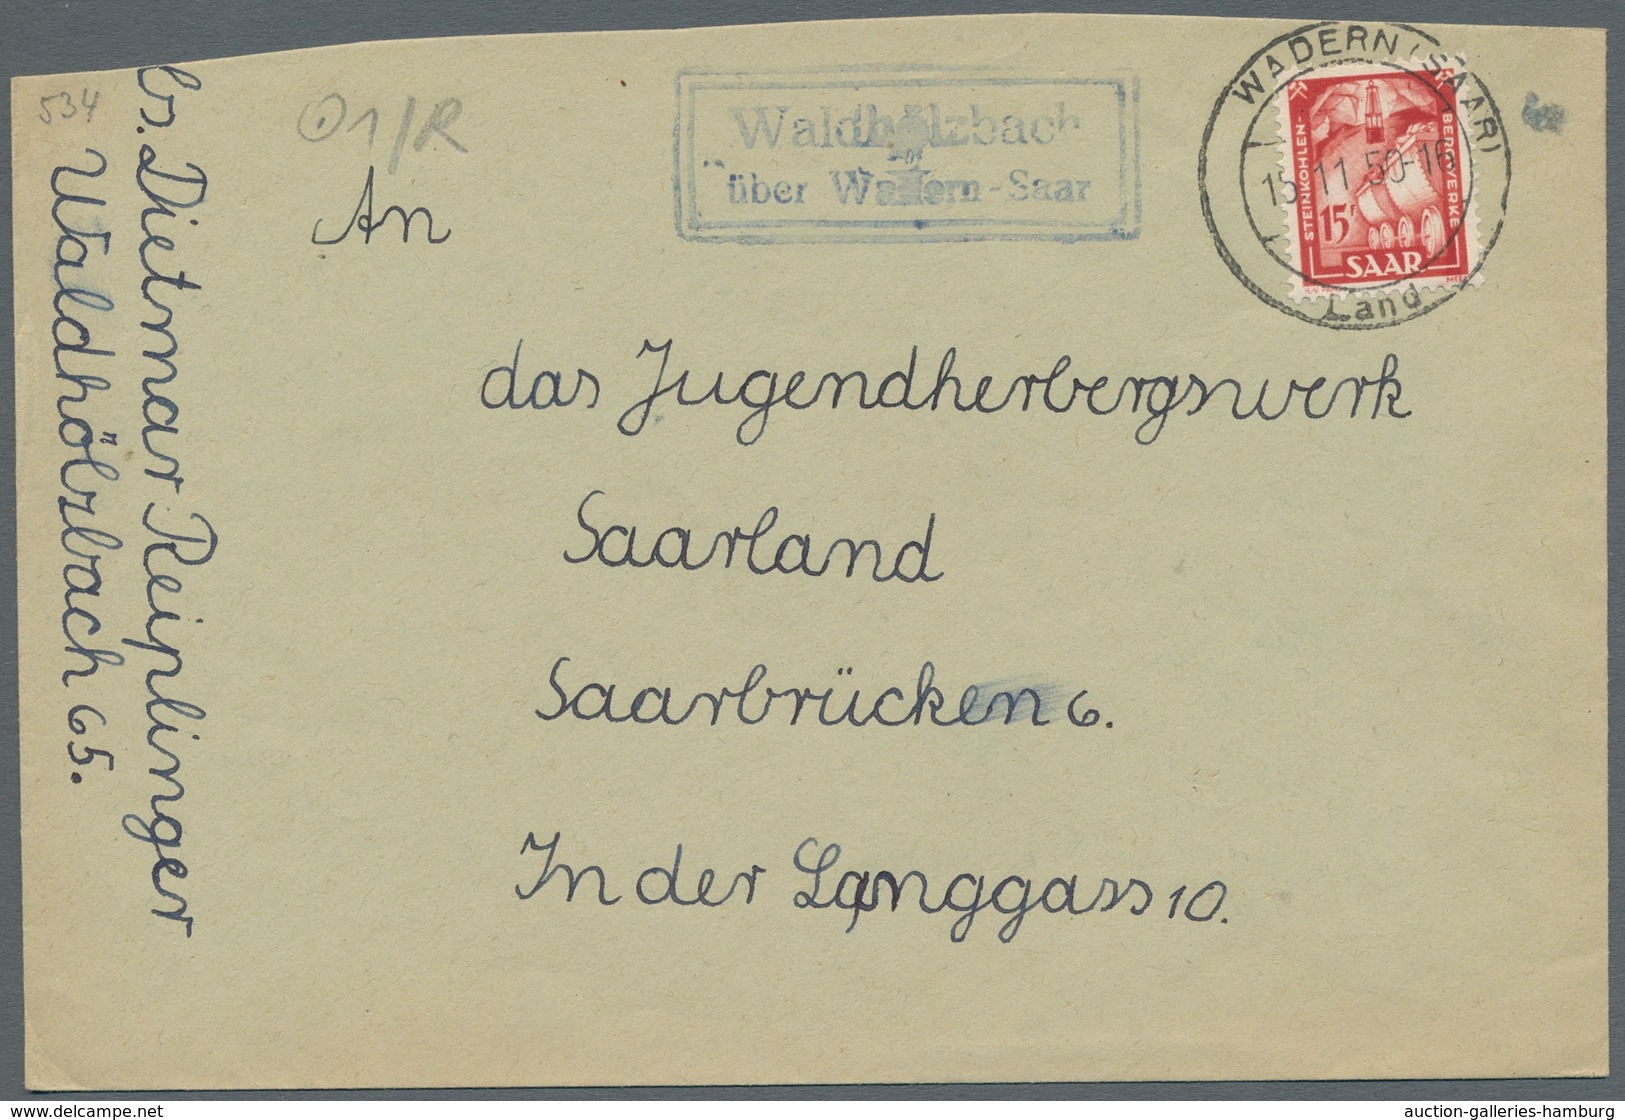 534
O1/R
Waldhölzbach
über Wadern-Saar
WADERN (SAAR)
15.11.50-16
Land
STEINKOHLEN-
BERGWERKE
15F
SAAR
An
das Jugendherbergswerk
Saarland
Saarbrücken 6.
In der Langgass 10.
Abs. Dietmar Reiplinger
Waldhölzbach 65.
delcampe.net
auction-galleries-hamburg